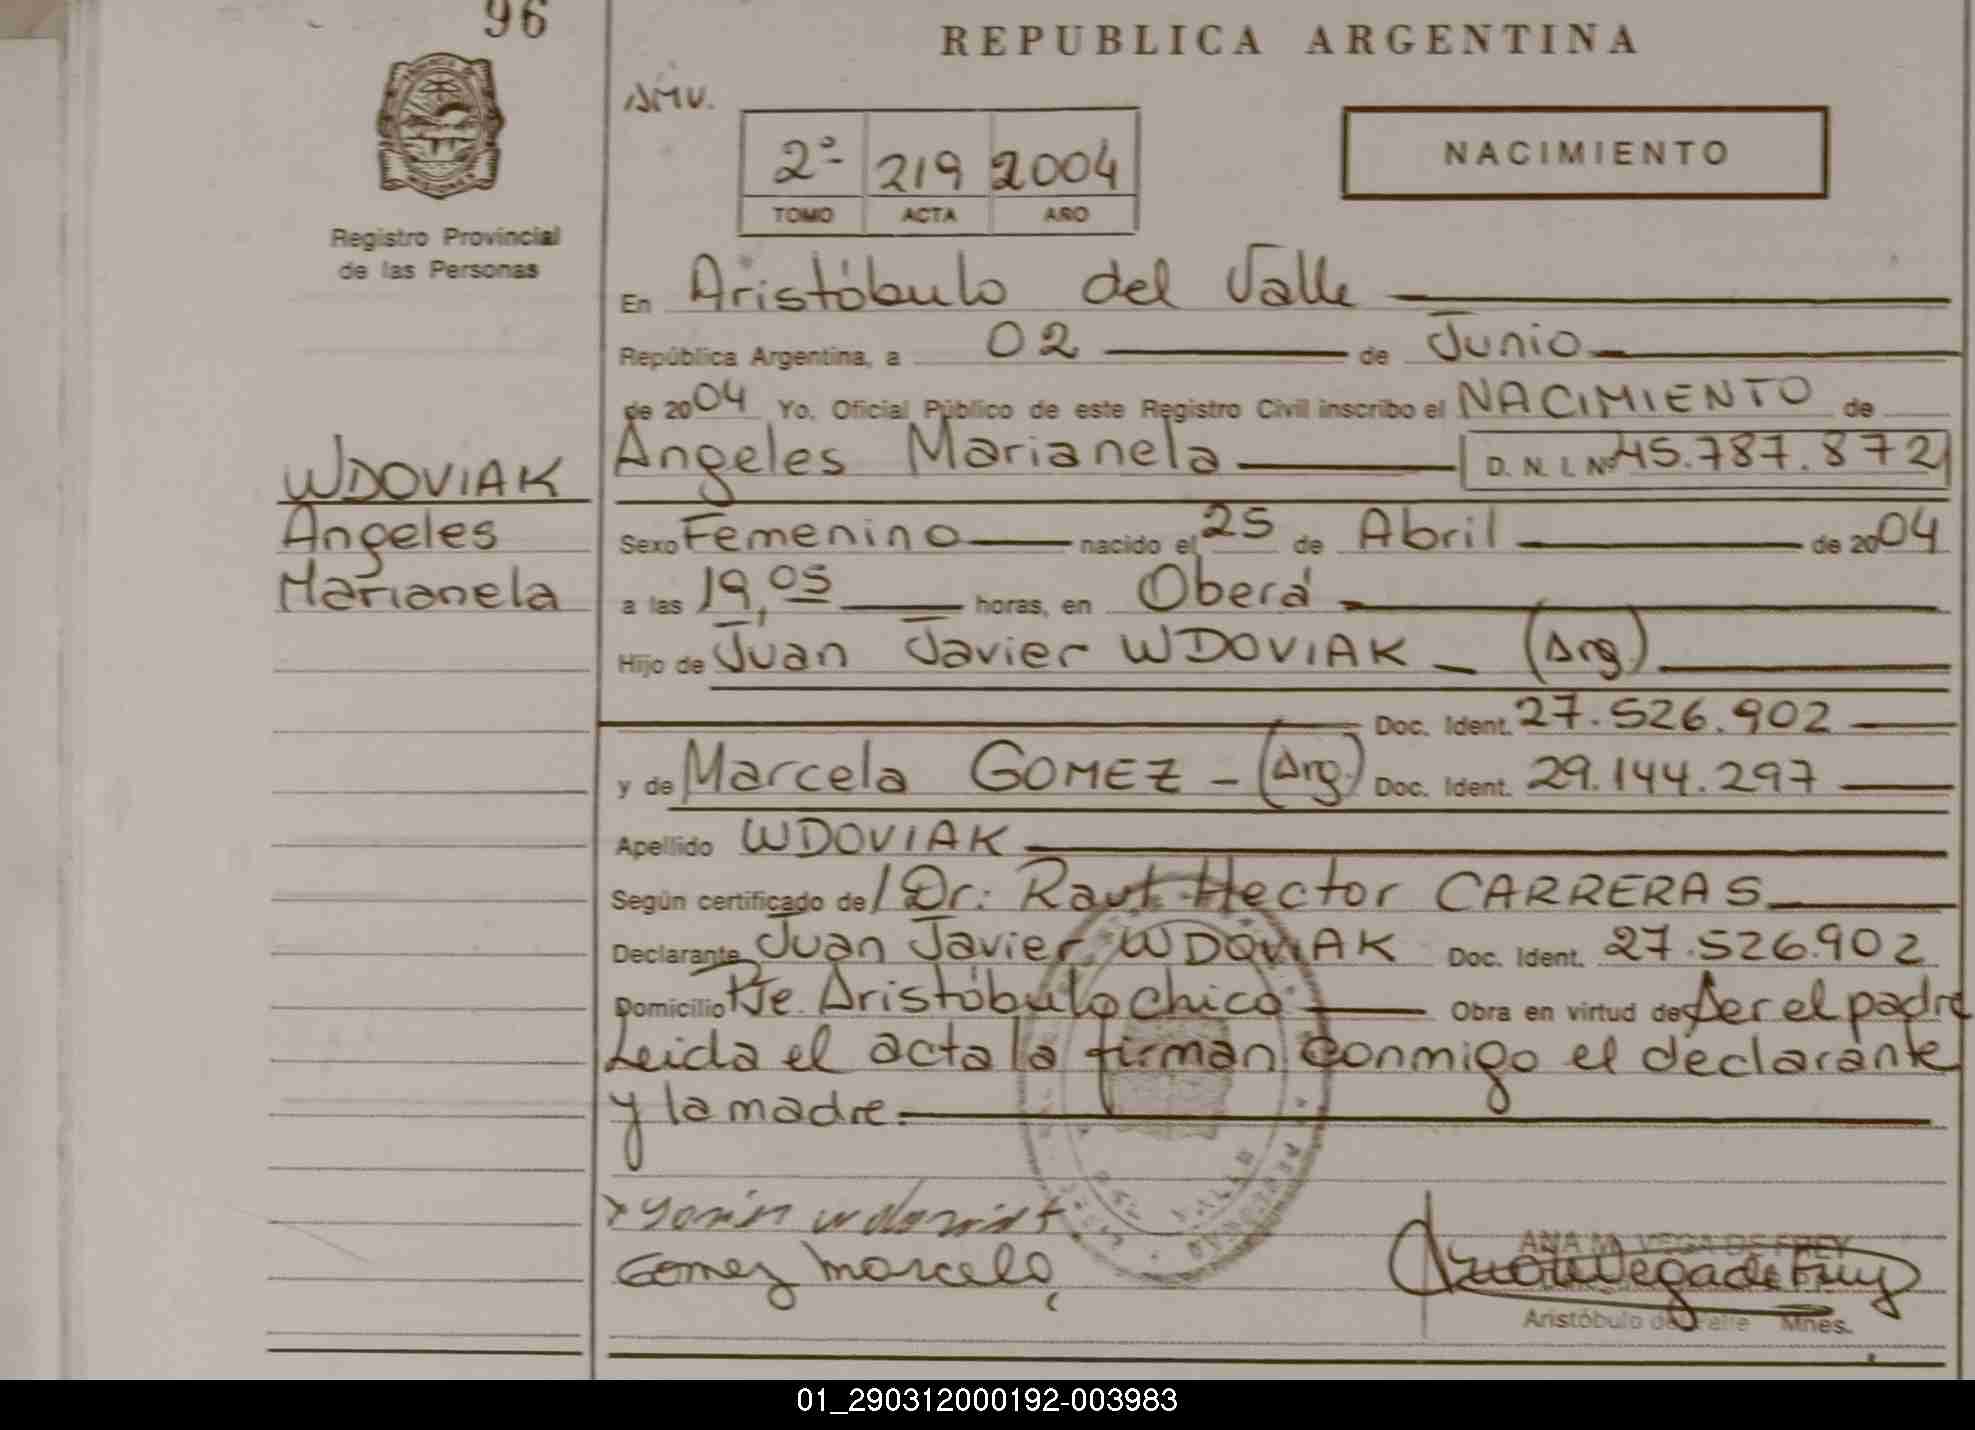 96
REPUBLICA ARGENTINA
AMV.
2º 219 2004
TOMO ACTA AÑO
NACIMIENTO
Registro Provincial
de las Personas
En Aristóbulo del Valle
República Argentina, a 02 de Junio
de 2004 Yo, Oficial Público de este Registro Civil inscribo el NACIMIENTO de
Angeles Marianela D. N. I. Nº 45.787.872
WDOVIAK
Angeles
Marianela
Sexo Femenino nacido el 25 de Abril de 2004
a las 19,05 horas, en Oberá
Hijo de Juan Javier WDOVIAK (Arg.)
Doc. Ident. 27.526.902
y de Marcela GOMEZ - (Arg.) Doc. Ident. 29.144.297
Apellido WDOVIAK
Según certificado de / Dr: Raul Hector CARRERAS
Declarante Juan Javier WDOVIAK Doc. Ident. 27.526.902
Domicilio Pje. Aristóbulo Chico Obra en virtud de Ser el padre
Leida el acta la firman conmigo el declarante
y la madre.
Gomez Marcela
ANA M. VEGA DE FREY
Aristóbulo del Valle Mnes.
01_290312000192-003983